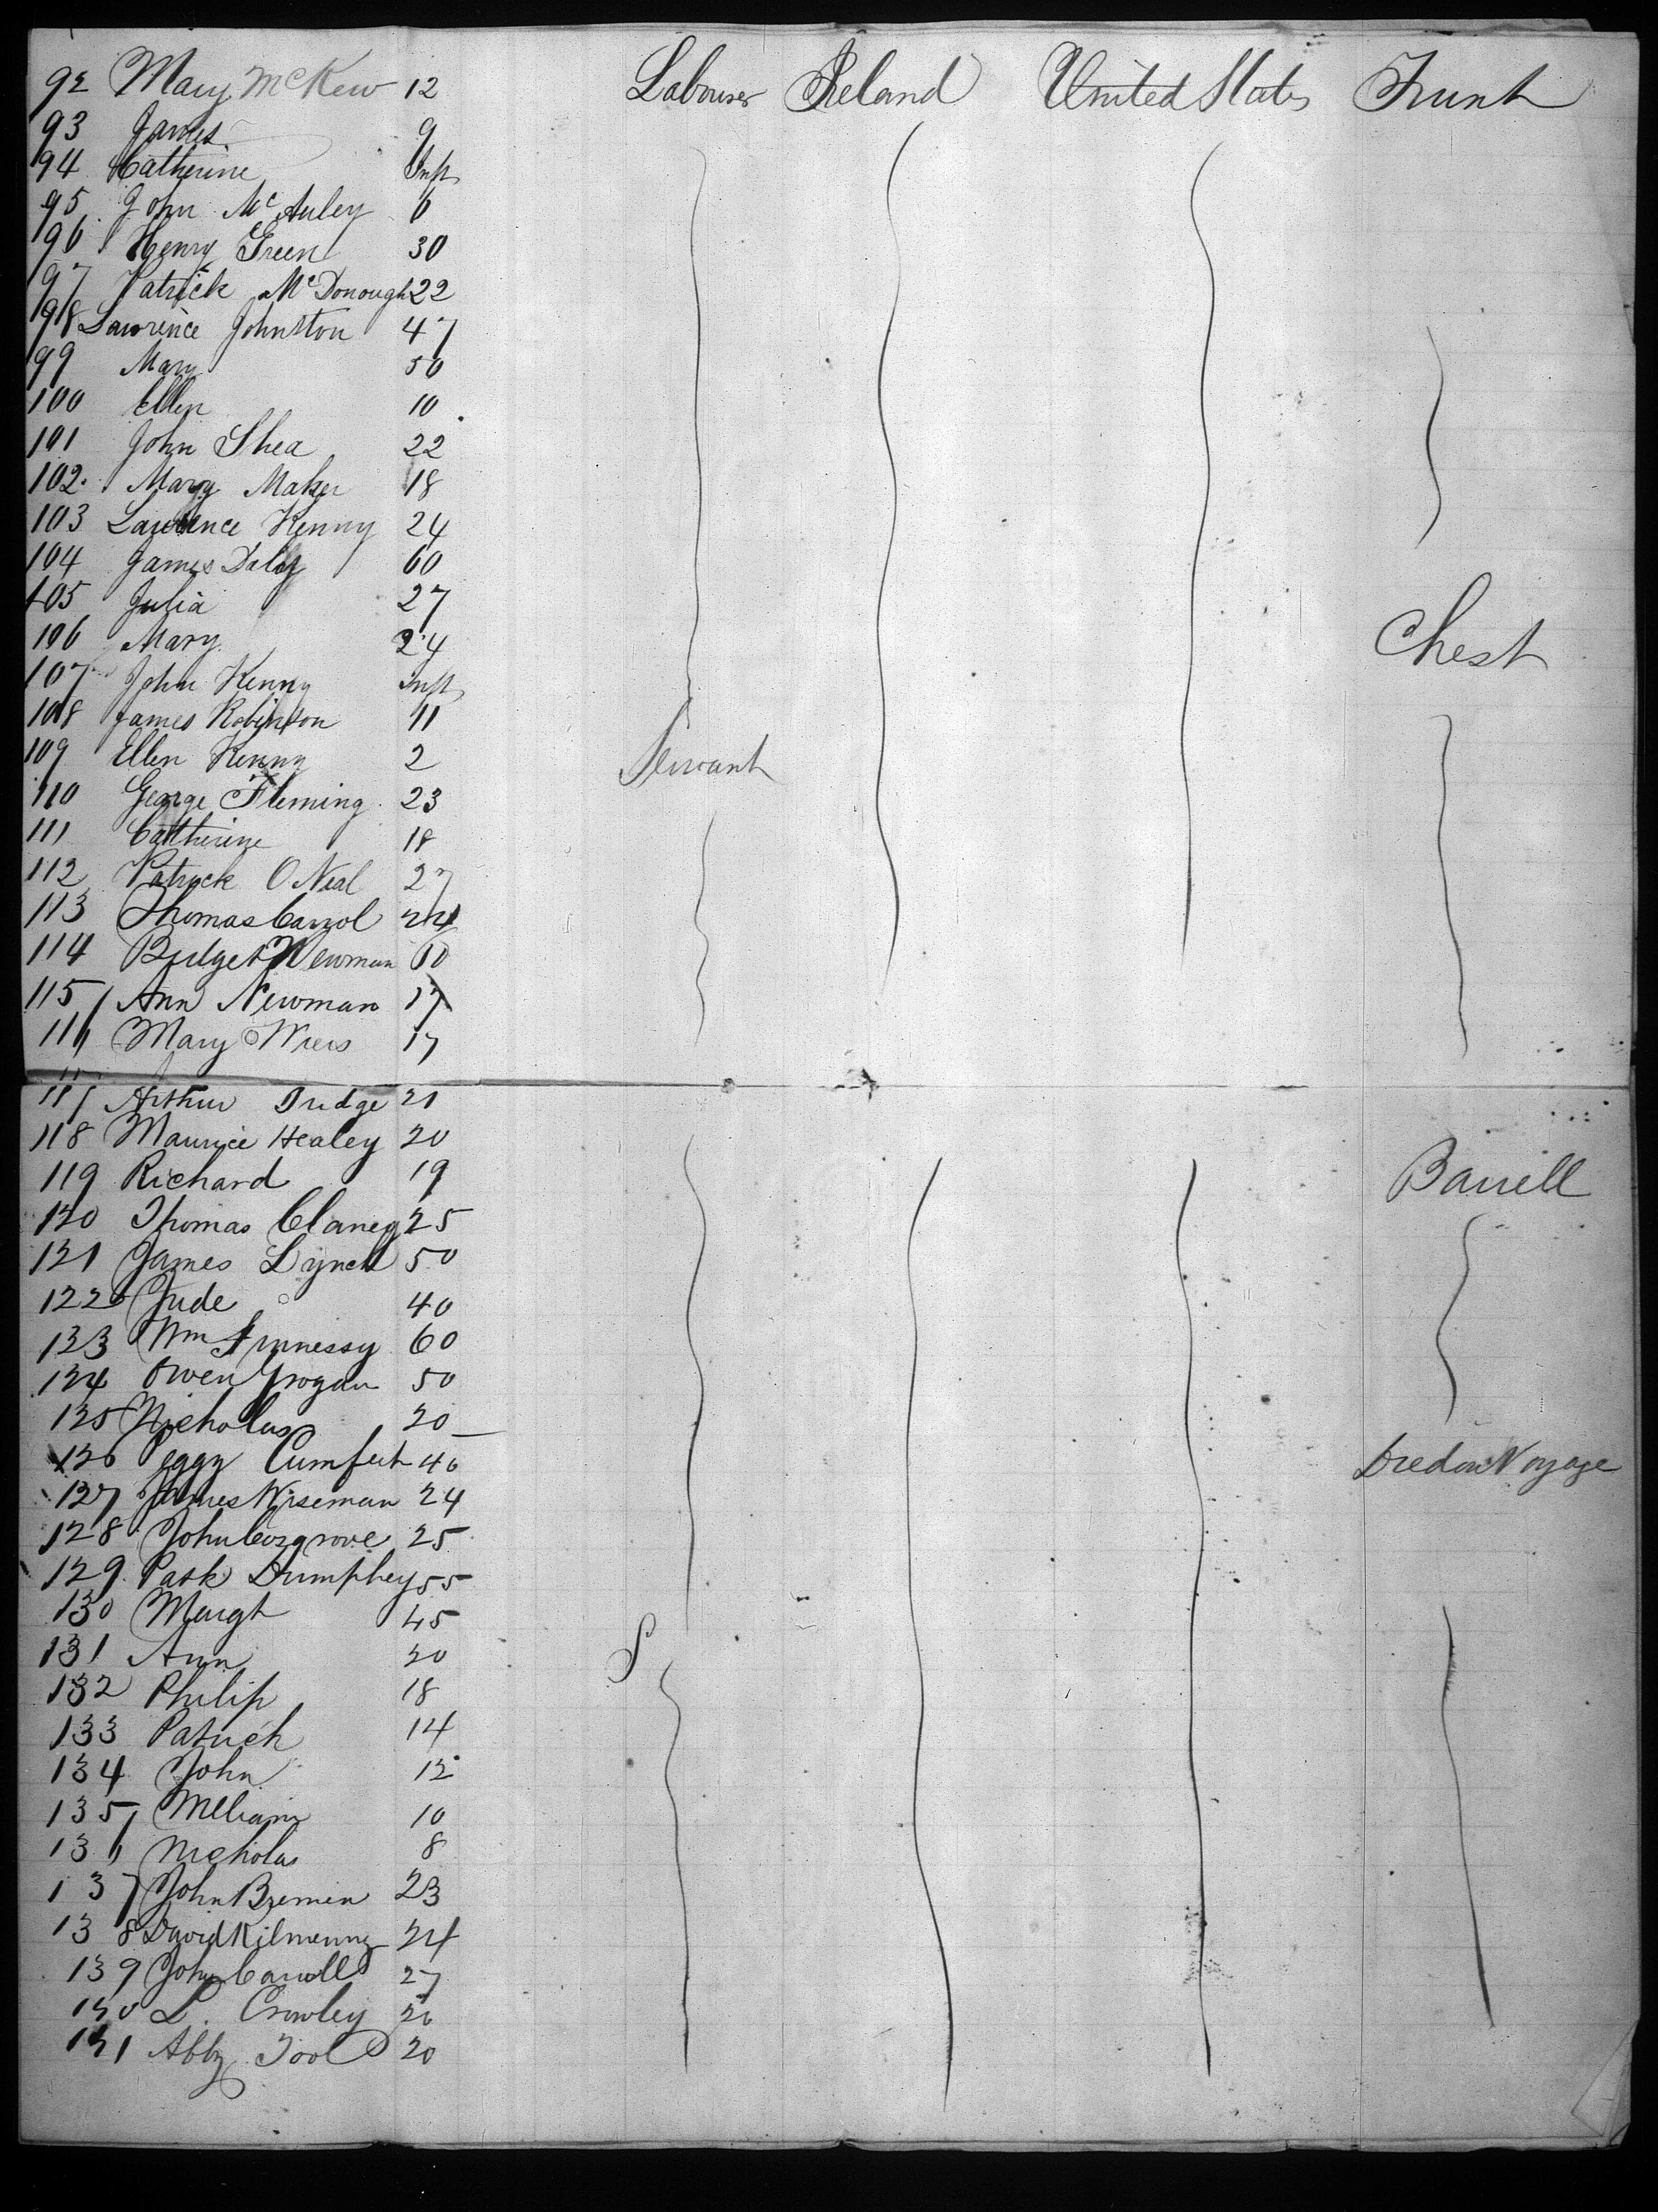 92 Mary McKew 12 Labourer Ireland United States Trunk
93 James 9
94 Catherine Inft
95 John McAuley 6
96 Henry Green 30
97 Patrick McDonough 22
98 Lawrence Johnston 47
99 Mary 50
100 Ellen 10
101 John Shea 22
102 Mary Maher 18
103 Lawrence Kenny 24
104 James Daly 60
105 Julia 27
106 Mary 24 Chest
107 John Kenny Inft
108 James Robinson 11
109 Ellen Kenny 2 Servant
110 George Fleming 23
111 Catherine 18
112 Patrick O Neal 27
113 Thomas Carrol 24
114 Bridget Newman 10
115 Ann Newman 17
116 Mary 17
117 Arthur Judge 21
118 Maurice Healey 20
119 Richard 19 Barrell
120 Thomas Clancy 25
121 James Lynch 50
122 Jude 40
123 Wm 60
124 Owen Grogan 50
125 Nicholas 20
126 Peggy 40 Died on Voyage
127 James Wiseman 24
128 John Cosgrove 25
129 Patk Dumphey 55
130 Margt 45
131 Ann 20 S
132 Philip 18
133 Patrick 14
134 John 12
135 William 10
136 Nicholas 8
137 John Bremen 23
138 David Kilmenny 24
139 John Carroll 27
140 L. Crowley 20
141 Abby Tool 20